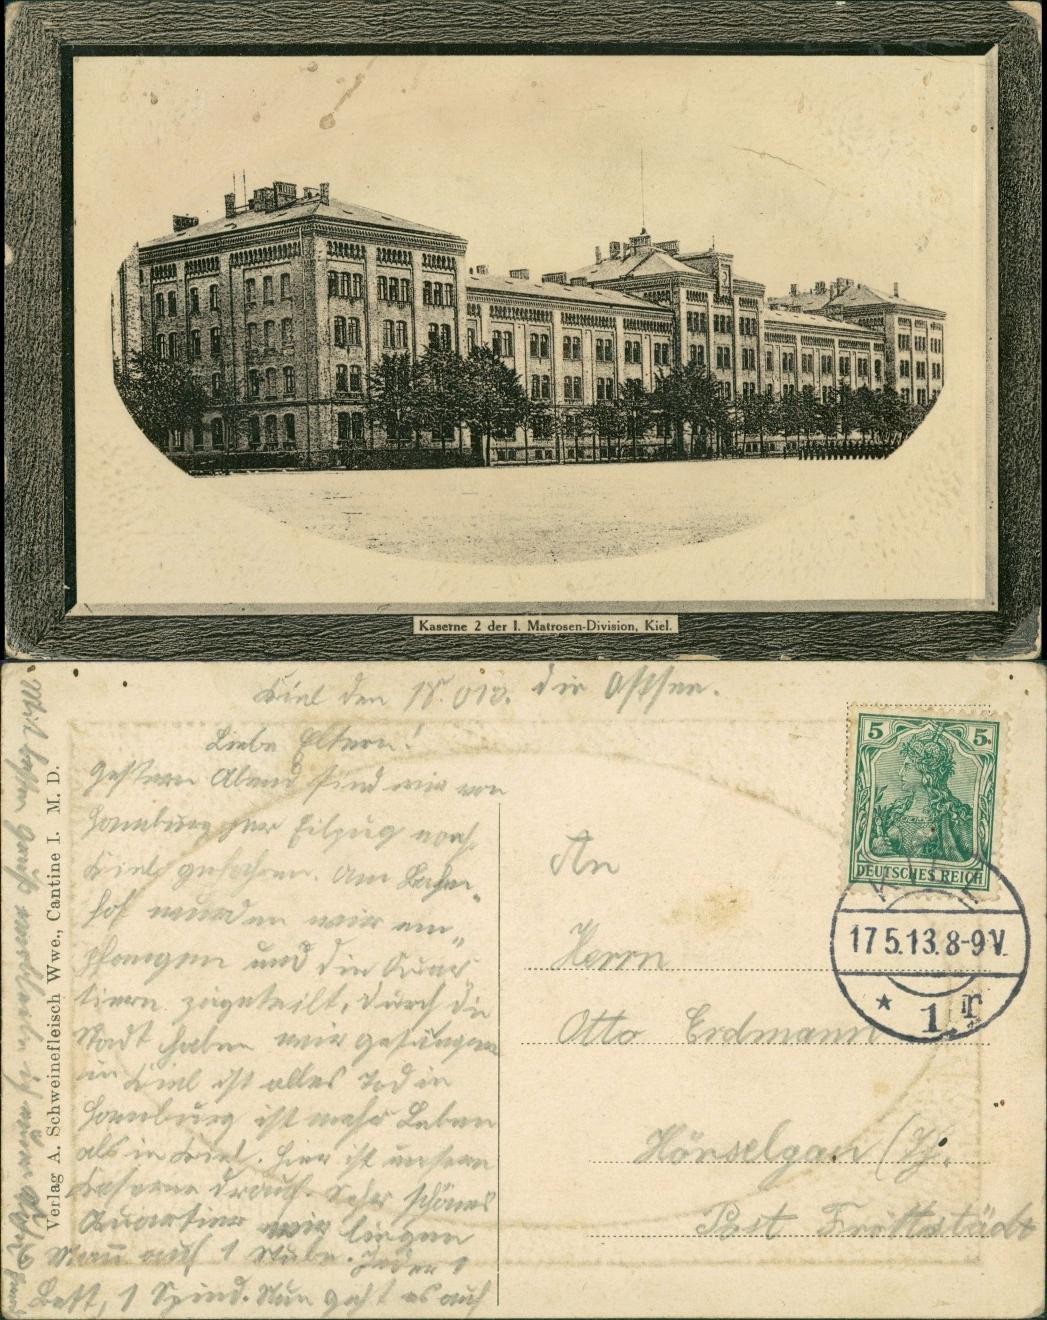 Kaserne 2 der I. Matrosen-Division, Kiel.
Kiel den die Ostsee.
Liebe Eltern!
Gestern Abend sind wir von
Hamburg per Eilzug nach
Kiel gefahren. Am Bahn-
hof wurden wir em-
pfangen und die Quar-
tieren zugeteilt, durch die
Stadt haben wir gesungen
in Kiel ist alles Tod in
Hamburg ist mehr Leben
als in Kiel. Hier ist unsere
Kaserne drauf. Sehr schönes
Quartier wir liegen
Mann auf 1 Stube. Jeder 1
Bett, 1 Spind. Nun geht es auf
Verlag A. Schweinefleisch Wwe., Cantine I. M. D.
5 5
DEUTSCHES REICH
KIEL
17 5.13.8-9V.
* 1 r
An
Herrn
Otto Erdmann
Hörselgau (Th.
Post Fröttstädt